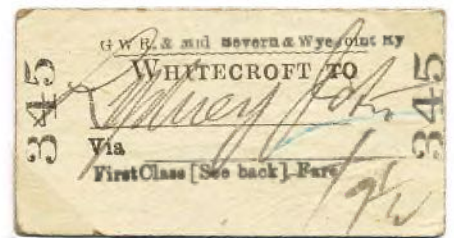 345
G W R. & Mid Severn & Wye Joint Ry
WHITECROFT TO
Lydney Jctn
Via
First Class [See back]. Fare
345